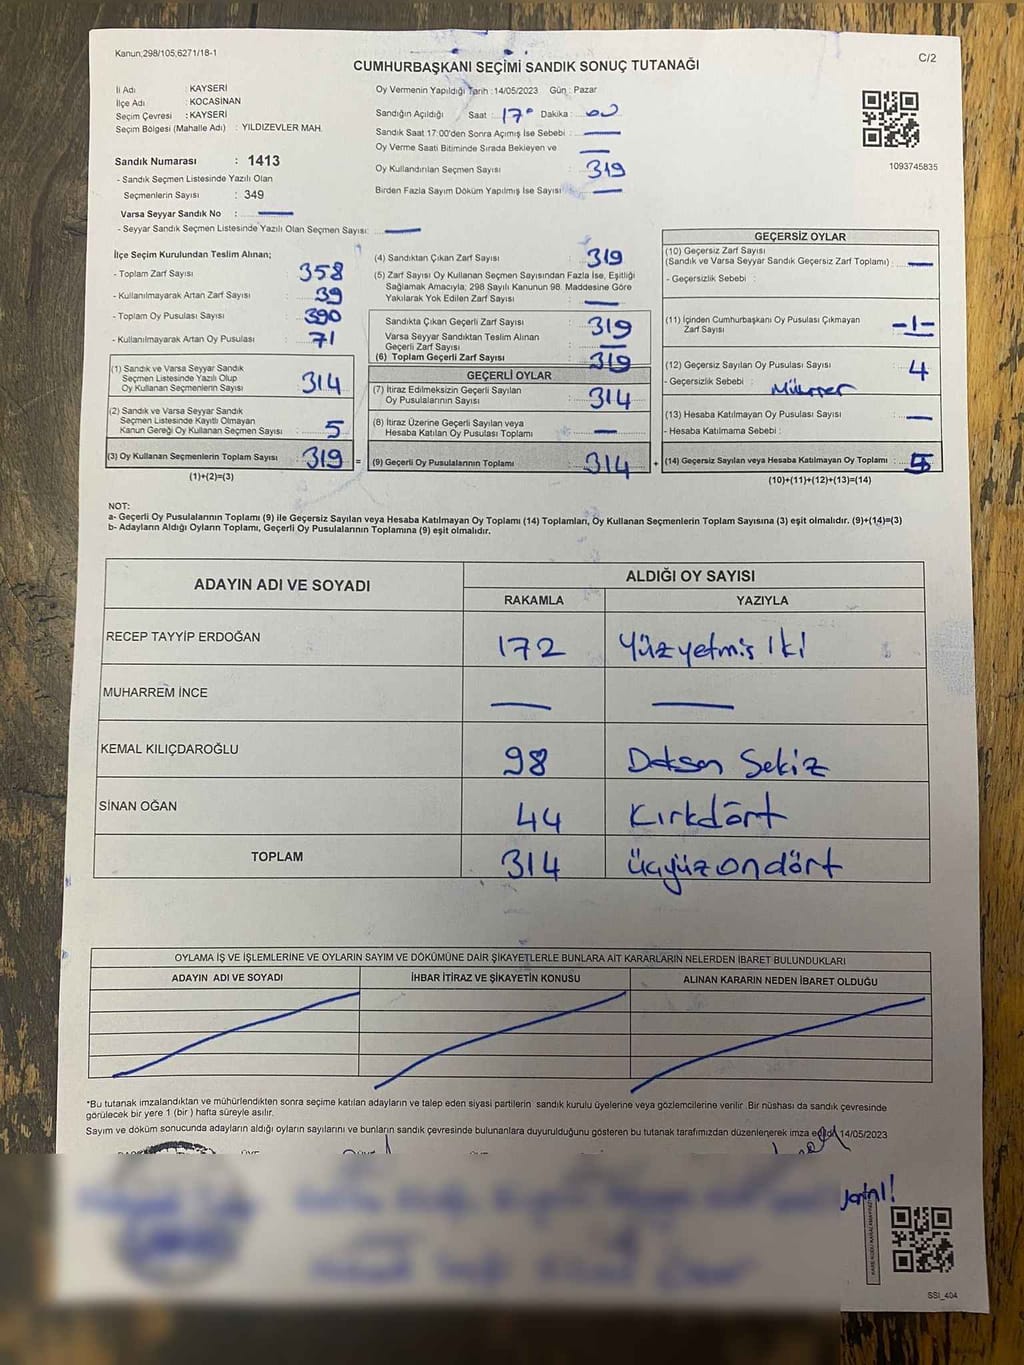 Kanun,298/105,6271/18-1
C/2
CUMHURBAŞKANI SEÇİMİ SANDIK SONUÇ TUTANAĞI
İl Adı : KAYSERİ
İlçe Adı : KOCASİNAN
Seçim Çevresi : KAYSERİ
Seçim Bölgesi (Mahalle Adı) : YILDIZEVLER MAH.
Sandık Numarası : 1413
- Sandık Seçmen Listesinde Yazılı Olan
Seçmenlerin Sayısı : 349
Varsa Seyyar Sandık No : —
- Seyyar Sandık Seçmen Listesinde Yazılı Olan Seçmen Sayısı: —
Oy Vermenin Yapıldığı Tarih : 14/05/2023 Gün : Pazar
Sandığın Açıldığı Saat : 17° Dakika : 00
Sandık Saat 17:00'den Sonra Açmış İse Sebebi : —
Oy Verme Saati Bitiminde Sırada Bekleyen ve —
Oy Kullandırılan Seçmen Sayısı : 319
Birden Fazla Sayım Döküm Yapılmış İse Sayısı : —
1093745835
İlçe Seçim Kurulundan Teslim Alınan;
- Toplam Zarf Sayısı : 358
- Kullanılmayarak Artan Zarf Sayısı : 39
- Toplam Oy Pusulası Sayısı : 390
- Kullanılmayarak Artan Oy Pusulası : 71
(1) Sandık ve Varsa Seyyar Sandık
Seçmen Listesinde Yazılı Olup
Oy Kullanan Seçmenlerin Sayısı : 314
(2) Sandık ve Varsa Seyyar Sandık
Seçmen Listesinde Kayıtlı Olmayan
Kanun Gereği Oy Kullanan Seçmen Sayısı : 5
(3) Oy Kullanan Seçmenlerin Toplam Sayısı : 319 =
(1)+(2)=(3)
(4) Sandıktan Çıkan Zarf Sayısı : 319
(5) Zarf Sayısı Oy Kullanan Seçmen Sayısından Fazla İse, Eşitliği
Sağlamak Amacıyla; 298 Sayılı Kanunun 98. Maddesine Göre
Yakılarak Yok Edilen Zarf Sayısı : —
Sandıkta Çıkan Geçerli Zarf Sayısı : 319
Varsa Seyyar Sandıktan Teslim Alınan
Geçerli Zarf Sayısı : —
(6) Toplam Geçerli Zarf Sayısı : 319
GEÇERLİ OYLAR
(7) İtiraz Edilmeksizin Geçerli Sayılan
Oy Pusulalarının Sayısı : 314
(8) İtiraz Üzerine Geçerli Sayılan veya
Hesaba Katılan Oy Pusulası Toplamı : —
(9) Geçerli Oy Pusulalarının Toplamı : 314 +
GEÇERSİZ OYLAR
(10) Geçersiz Zarf Sayısı
(Sandık ve Varsa Seyyar Sandık Geçersiz Zarf Toplamı) : —
- Geçersizlik Sebebi :
(11) İçinden Cumhurbaşkanı Oy Pusulası Çıkmayan
Zarf Sayısı : -1-
(12) Geçersiz Sayılan Oy Pusulası Sayısı : 4
- Geçersizlik Sebebi :
(13) Hesaba Katılmayan Oy Pusulası Sayısı : —
- Hesaba Katılmama Sebebi :
(14) Geçersiz Sayılan veya Hesaba Katılmayan Oy Toplamı : 5
(10)+(11)+(12)+(13)=(14)
NOT:
a- Geçerli Oy Pusulalarının Toplamı (9) ile Geçersiz Sayılan veya Hesaba Katılmayan Oy Toplamı (14) Toplamları, Oy Kullanan Seçmenlerin Toplam Sayısına (3) eşit olmalıdır. (9)+(14)=(3)
b- Adayların Aldığı Oyların Toplamı, Geçerli Oy Pusulalarının Toplamına (9) eşit olmalıdır.
ADAYIN ADI VE SOYADI ALDIĞI OY SAYISI
RAKAMLA YAZIYLA
RECEP TAYYİP ERDOĞAN 172 Yüzyetmis İki
MUHARREM İNCE — —
KEMAL KILIÇDAROĞLU 98 Doksan Sekiz
SİNAN OĞAN 44 Kırkdört
TOPLAM 314 üçyüzondört
OYLAMA İŞ VE İŞLEMLERİNE VE OYLARIN SAYIM VE DÖKÜMÜNE DAİR ŞİKAYETLERLE BUNLARA AİT KARARLARIN NELERDEN İBARET BULUNDUKLARI
ADAYIN ADI VE SOYADI İHBAR İTİRAZ VE ŞİKAYETİN KONUSU ALINAN KARARIN NEDEN İBARET OLDUĞU
*Bu tutanak imzalandıktan ve mühürlendikten sonra seçime katılan adayların ve talep eden siyasi partilerin sandık kurulu üyelerine veya gözlemcilerine verilir. Bir nüshası da sandık çevresinde
görülecek bir yere 1 (bir ) hafta süreyle asılır.
Sayım ve döküm sonucunda adayların aldığı oyların sayılarını ve bunların sandık çevresinde bulunanlara duyurulduğunu gösteren bu tutanak tarafımızdan düzenlenerek imza edildi. 14/05/2023
SSI_404